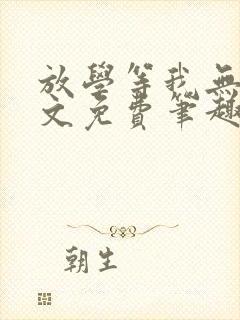 放學等我無
文免費筆趣
朝生